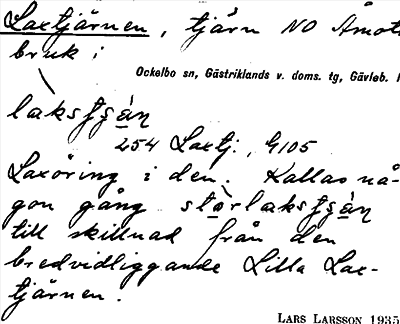 Laxtjärnen, tjärn NO Åmots
bruk;
Ockelbo sn, Gästriklands v. doms. tg, Gävleb.
laksʃɛ̀ṇ
254 Laxtj., G105
Laxöring i den. Kallas nå-
gon gång
till skillnad från den
bredvidliggande Lilla Lax-
tjärnen.
LARS LARSSON 1935